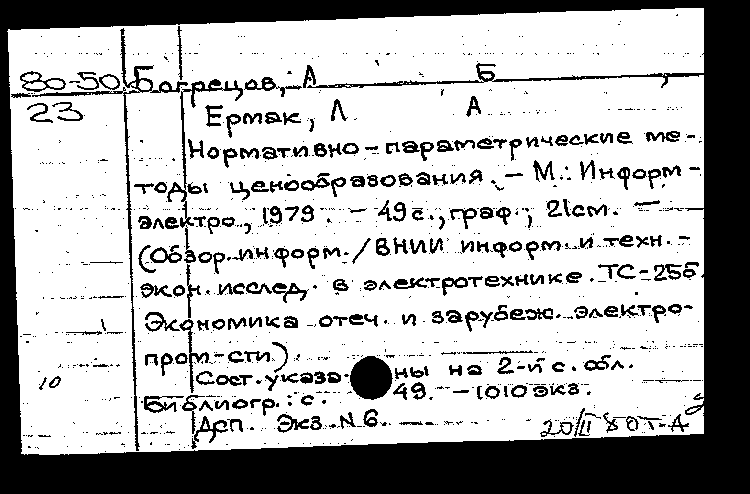 80-50 Багрецов, А Б
23 Ермак, Л А
Нормативно-параметрические ме-
тоды ценообразования. – М.: Информ-
электро, 1979. – 49 с., граф.; 21 см. –
(Обзор. информ. / ВНИИ информ. и техн.-
экон. исслед. в электротехнике. ТС-25б.
Экономика отеч. и зарубеж. электро-
пром-сти).
10 Сост. указа ны на 2-й с. обл.
Библиогр.: с. 49. – 1010 экз.
Деп. Экз. N 6. 20/II 80 Т-А